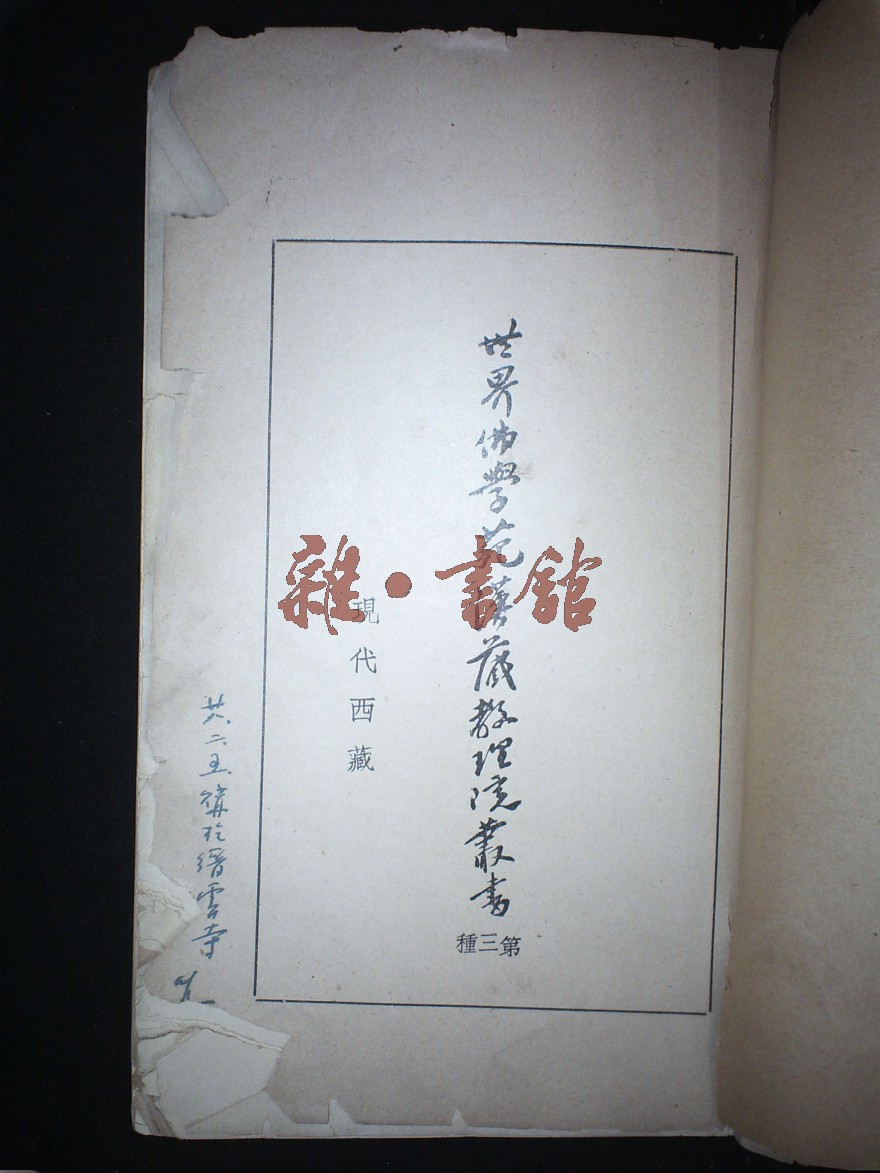 世界佛學苑漢藏教理院叢書
第三種
現代西藏
廿八、二、五、購於縉雲寺
雜·書館